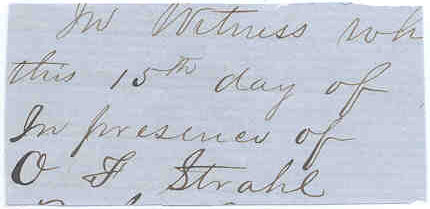 In Witness wh
this 15th day of
In presence of
O F Strahl